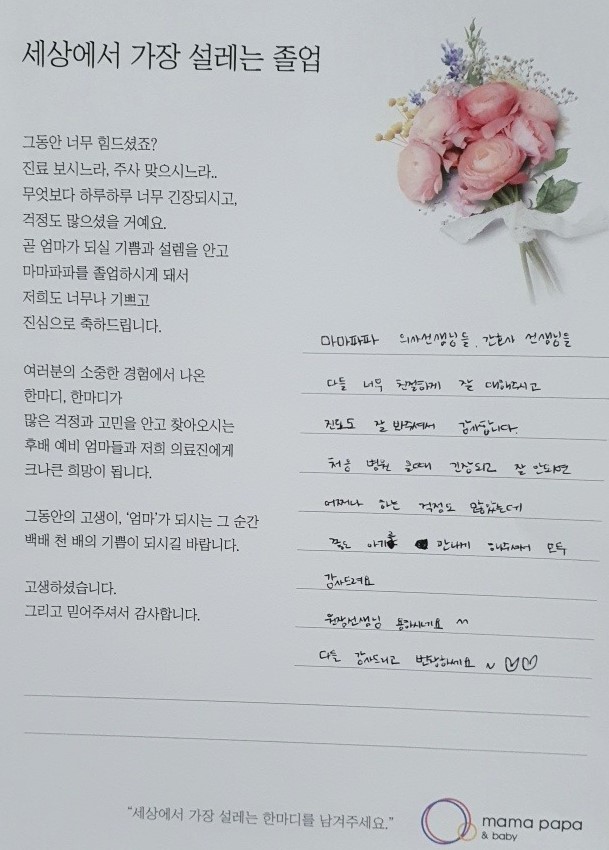 세상에서 가장 설레는 졸업
그동안 너무 힘드셨죠?
진료 보시느라, 주사 맞으시느라..
무엇보다 하루하루 너무 긴장되시고,
걱정도 많으셨을 거예요.
곧 엄마가 되실 기쁨과 설렘을 안고
마마파파를 졸업하시게 돼서
저희도 너무나 기쁘고
진심으로 축하드립니다.
여러분의 소중한 경험에서 나온
한마디, 한마디가
많은 걱정과 고민을 안고 찾아오시는
후배 예비 엄마들과 저희 의료진에게
크나큰 희망이 됩니다.
그동안의 고생이, ‘엄마’가 되시는 그 순간
백배 천 배의 기쁨이 되시길 바랍니다.
고생하셨습니다.
그리고 믿어주셔서 감사합니다.
마마파파 의사선생님들, 간호사 선생님들
다들 너무 친절하게 잘 대해주시고
진료도 잘 봐주셔서 감사합니다.
처음 병원 올때 긴장되고 잘 안되면
어쩌나 하는 걱정도 많았는데
아기를 만나게 해주셔서 모두
감사드려요
원장선생님 ~
다들 감사드리고 번창하세요 ~ ♡♡
“세상에서 가장 설레는 한마디를 남겨주세요.”
mama papa
& baby